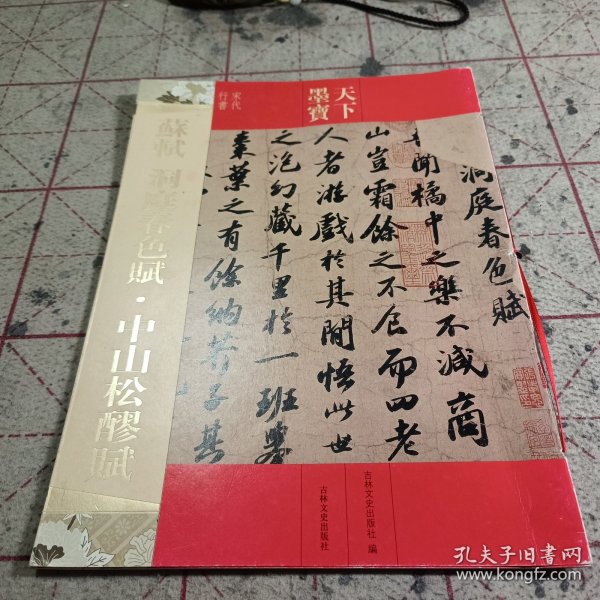 天下
墨寶
宋代
行書
蘇軾 洞庭春色賦·中山松醪賦
洞庭春色賦
聞橘中之樂不減商
山豈霜餘之不食而四老
人者游戲於其間悟此世
之泡幻藏千里於一班舉
棗葉之有餘納芥子其
吉林文史出版社 編
吉林文史出版社
孔夫子旧書网
www.kongfz.com